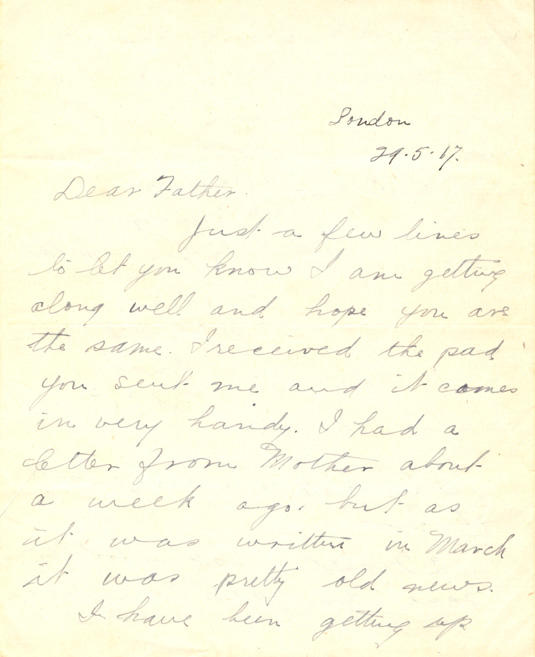 London
29.5.17.
Dear Father.
Just a few lines
to let you know I am getting
along well and hope you are
the same. I received the pad
you sent me and it comes
in very handy. I had a
letter from Mother about
a week ago. but as
it was written in March
it was pretty old news.
I have been getting up